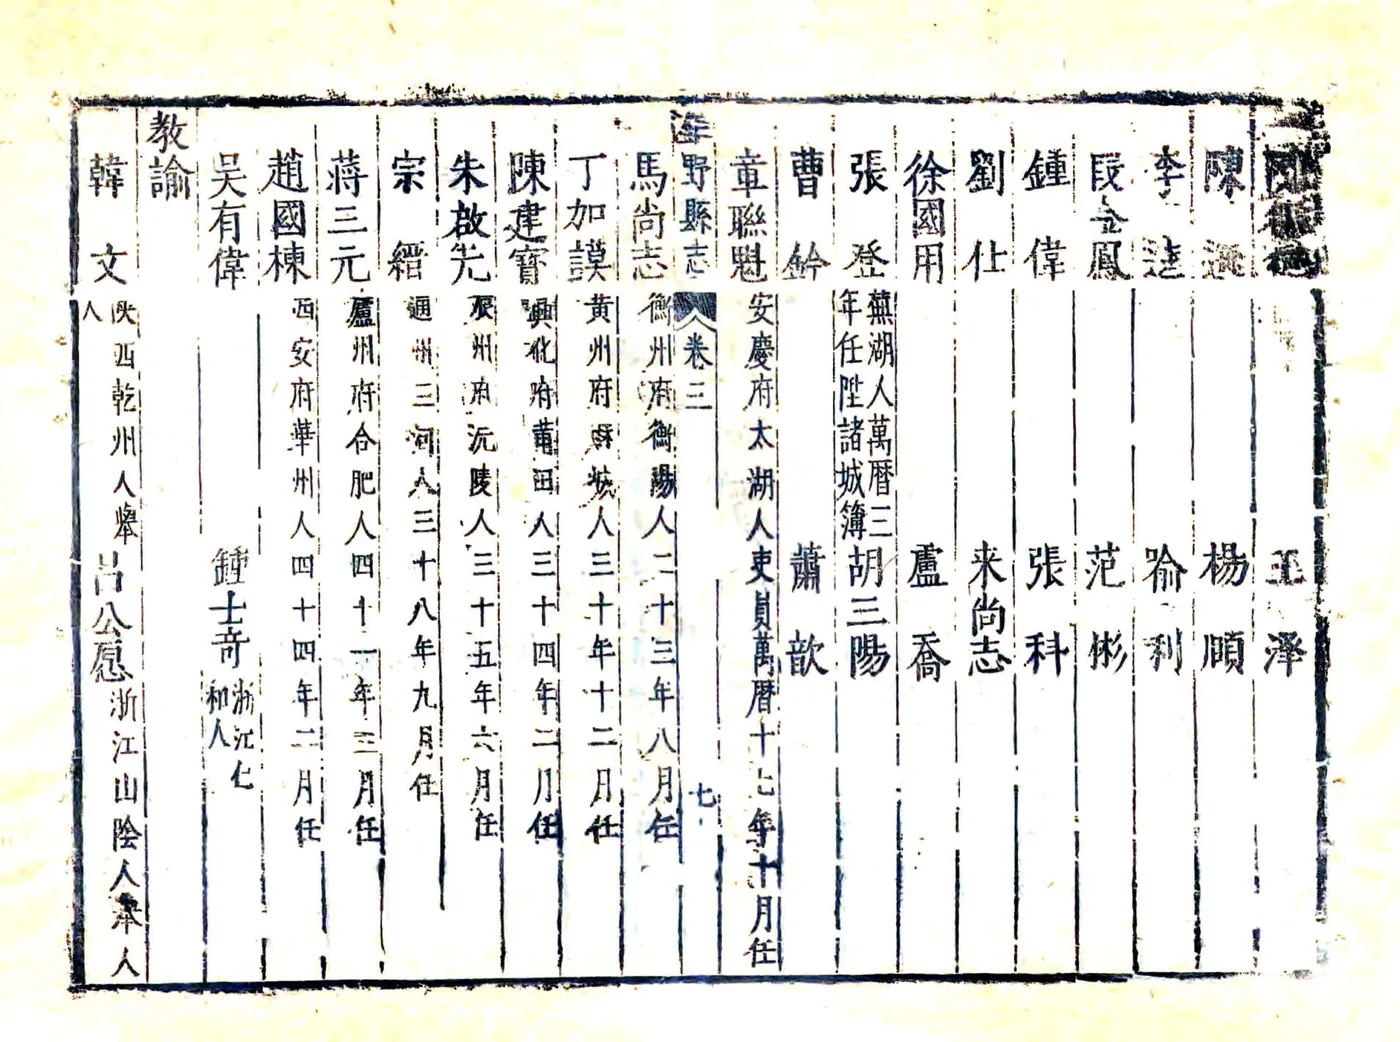 王澤
陳
楊頎
李逵
喻利
段金鳳
范彬
鍾偉
張科
劉仕
来尚志
徐國用
盧喬
張登
蕪湖人萬暦三
年任陞諸城簿
胡三陽
曹鈐
蕭歆
章聯魁
安慶府太湖人吏員萬暦十七年十月任
野縣志
卷三
七
馬尚志
衡州府衡陽人二十三年八月任
丁加謨
黄州府麻城人三十年十二月任
陳建寳
興化府莆田人三十四年二月任
朱啟先
辰州府沅陵人三十五年六月任
宗繒
通州三河人三十八年九月任
蔣三元
廬州府合肥人四十一年三月任
趙國棟
西安府華州人四十四年二月任
吴有偉
鍾士奇
浙江仁
和人
教諭
韓文
陜西乾州人舉
人
吕公愿
浙江山陰人舉人